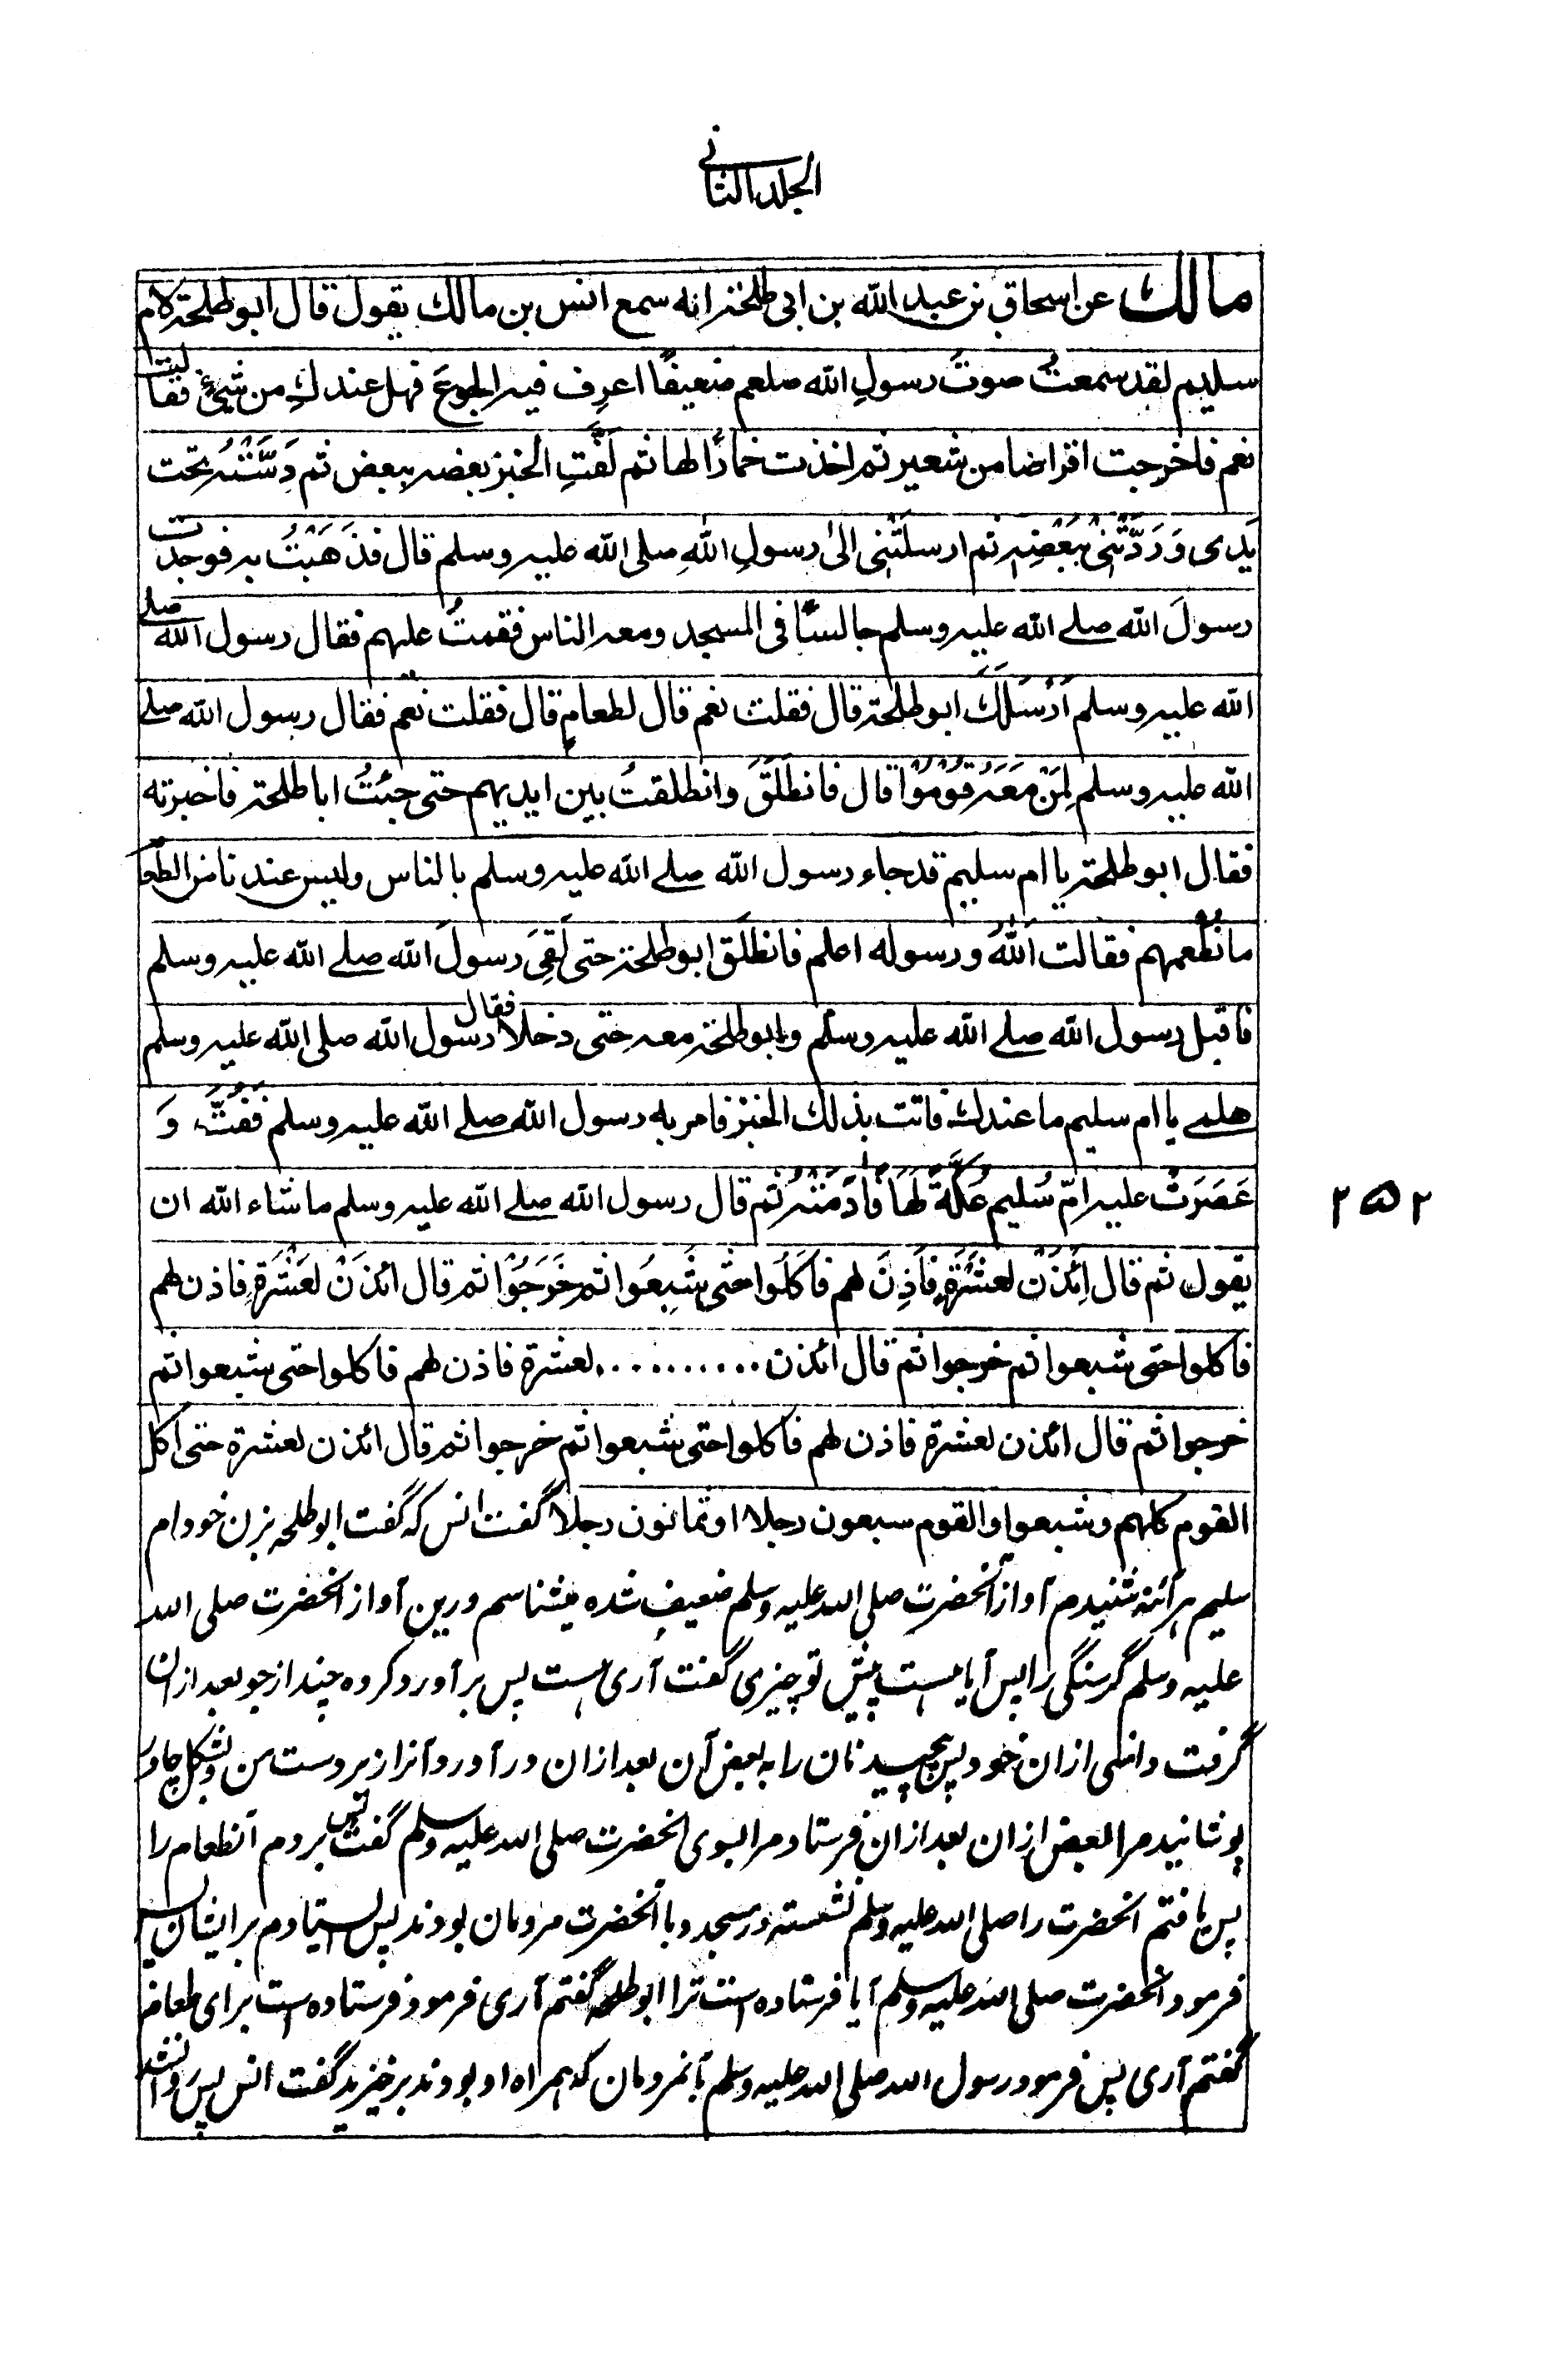 الجلد الثاني
مالك عن اسحاق بن عبد الله بن ابى طلحة انه سمع انس بن مالك يقول قال ابو طلحة لام
سليم لقد سمعتُ صوتَ رسولِ الله صلعم ضعيفًا اعرِف فيه الجوعَ فهل عندكِ من شئٍ فقالت
نعم فاخرجت اقراضا من شعير ثم اخذت خمارًا لها ثم لَفَّتِ الخبز بعضه ببعض ثم دَسَّتْهُ تحت
يَدِى وَرَدَّتْنِىْ بِبَعْضِهِ ثم ارسلَتْنِى الىٰ رسولِ اللهِ صلى الله عليه وسلم قال فذَهَبْتُ به فوجدت
رسولَ الله صلے الله عليه وسلم جالسًا فى المسجد ومعه الناس فقمتُ عليهم فقال رسول الله صلے
الله عليه وسلم اَرْسَلَكَ ابو طلحة قال فقلت نعم قال لطعامٍ قال فقلت نعم فقال رسول الله صلے
الله عليه وسلم لِمَنْ مَعَهُ قُوْمُوْا قال فانطَلَقَ وانطلقتُ بين ايديهم حتى جِئتُ ابا طلحة فاخبرته
فقال ابو طلحة يا ام سليم قد جاء رسول الله صلے الله عليه وسلم بالناس وليس عندنا من الطعا
ما نُطْعِمهم فقالت اَللهُ ورسوله اعلم فانطلَق ابو طلحة حتى لَقِىَ رسولَ الله صلے الله عليه وسلم
فاقبل رسول الله صلے الله عليه وسلم وابو طلحة معه حتى دخلا فقال رسول الله صلى الله عليه وسلم
هلمے يا ام سليم ما عندك فاتت بذلك الخبز فامر به رسول الله صلے الله عليه وسلم فَفُتَّ وَ
عَصَرَتْ عليه امّ سُليم عُكَّةً لَهَا فَاٰدَمَتْهُ ثم قال رسول الله صلے الله عليه وسلم ما شاء الله ان
يقول ثم قال اِئْذَنْ لعَشَرَةٍ فَاَذِنَ لهم فاَكَلُوا حتّى شَبِعُوا ثم خَرَجُوْا ثم قال ائذنْ لعَشْرَةٍ فاذن لهم
فاكلوا حتى شبعوا ثم خرجوا ثم قال ائذن .......... لعشرة فاذن لهم فاكلوا حتى شبعوا ثم
خرجوا ثم قال ائذن لعشرة فاذن لهم فاكلوا حتى شبعوا ثم خرجوا ثم قال ائذن لعشرة حتى اكل
القوم كلهم وشبعوا والقوم سبعون رجلا او ثمانون رجلا گفت انس که گفت ابو طلحه بزن خود ام
سلیم هرآئنه شنیدم آواز آنحضرت صلی الله علیه وسلم ضعیف شده میشناسم درین آواز آنحضرت صلی الله
علیه وسلم گرسنگی را پس آیا هست پیش تو چیزی گفت آری هست پس برآورد کروه چند از جو بعد ازان
گرفت دامنی ازان خود پس پیچید نان را به بعض آن بعد ازان در آورد آنرا زیر دست من و بشکل چادر
پوشانید مرا ببعض ازان بعد ازان فرستاد مرا بسوی آنحضرت صلی الله علیه وسلم گفت پس بردم آنطعام را
پس یافتم آنحضرت را صلی الله علیه وسلم نشسته در مسجد و با آنحضرت مردمان بودند پس ایستادم بر ایشان پس
فرمود آنحضرت صلی الله علیه وسلم آیا فرستاده است ترا ابو طلحه گفتم آری فرمود فرستاده است برای طعام
گفتم آری پس فرمود رسول الله صلی الله علیه وسلم بآنمردمان که همراه او بودند برخیزید گفت انس پس روانشد
۲۵۲